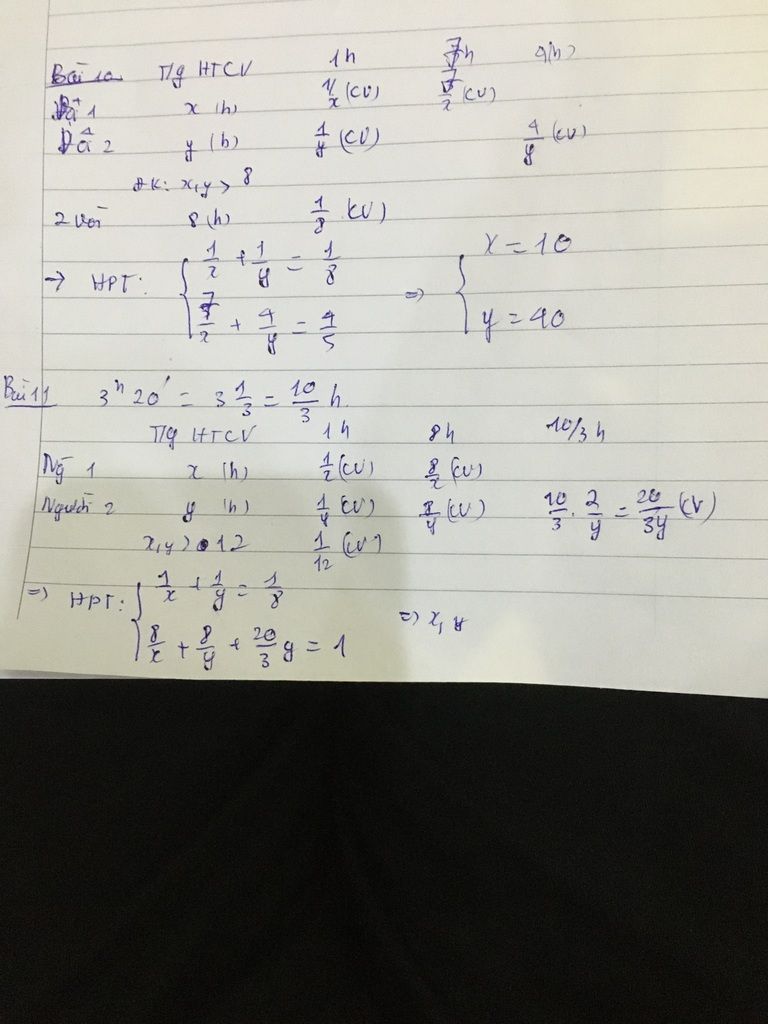 Bài 10 Tłg HTCV 1h 7h 4(h)
Đội 1 x (h) 1/x (CV) 7/x (CV)
Đội 2 y (h) 1/y (CV) 4/y (CV)
ĐK: x,y > 8
2 vòi 8 (h) 1/8 (CV)
→ HPT: { 1/x + 1/y = 1/8 ⇒ { x = 10
7/x + 4/y = 4/5 y = 40
Bài 11 3h 20' = 3 1/3 = 10/3 h
Tłg HTCV 1h 8h 10/3 h
Ng 1 x (h) 1/x (CV) 8/x (CV)
Người 2 y (h) 1/y (CV) 8/y (CV) 10/3 . 2/y = 20/3y (CV)
x,y > 12 1/12 (CV)
⇒ HPT: { 1/x + 1/y = 1/8
8/x + 8/y + 20/3 y = 1 ⇒ x, y